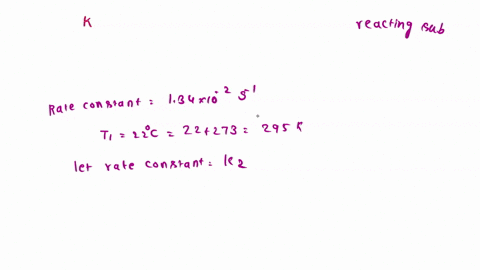 K
reacting sub
Rate constant = 1.34×10⁻² S¹
T₁ = 22°C = 22+273 = 295 K
let rate constant = K₂